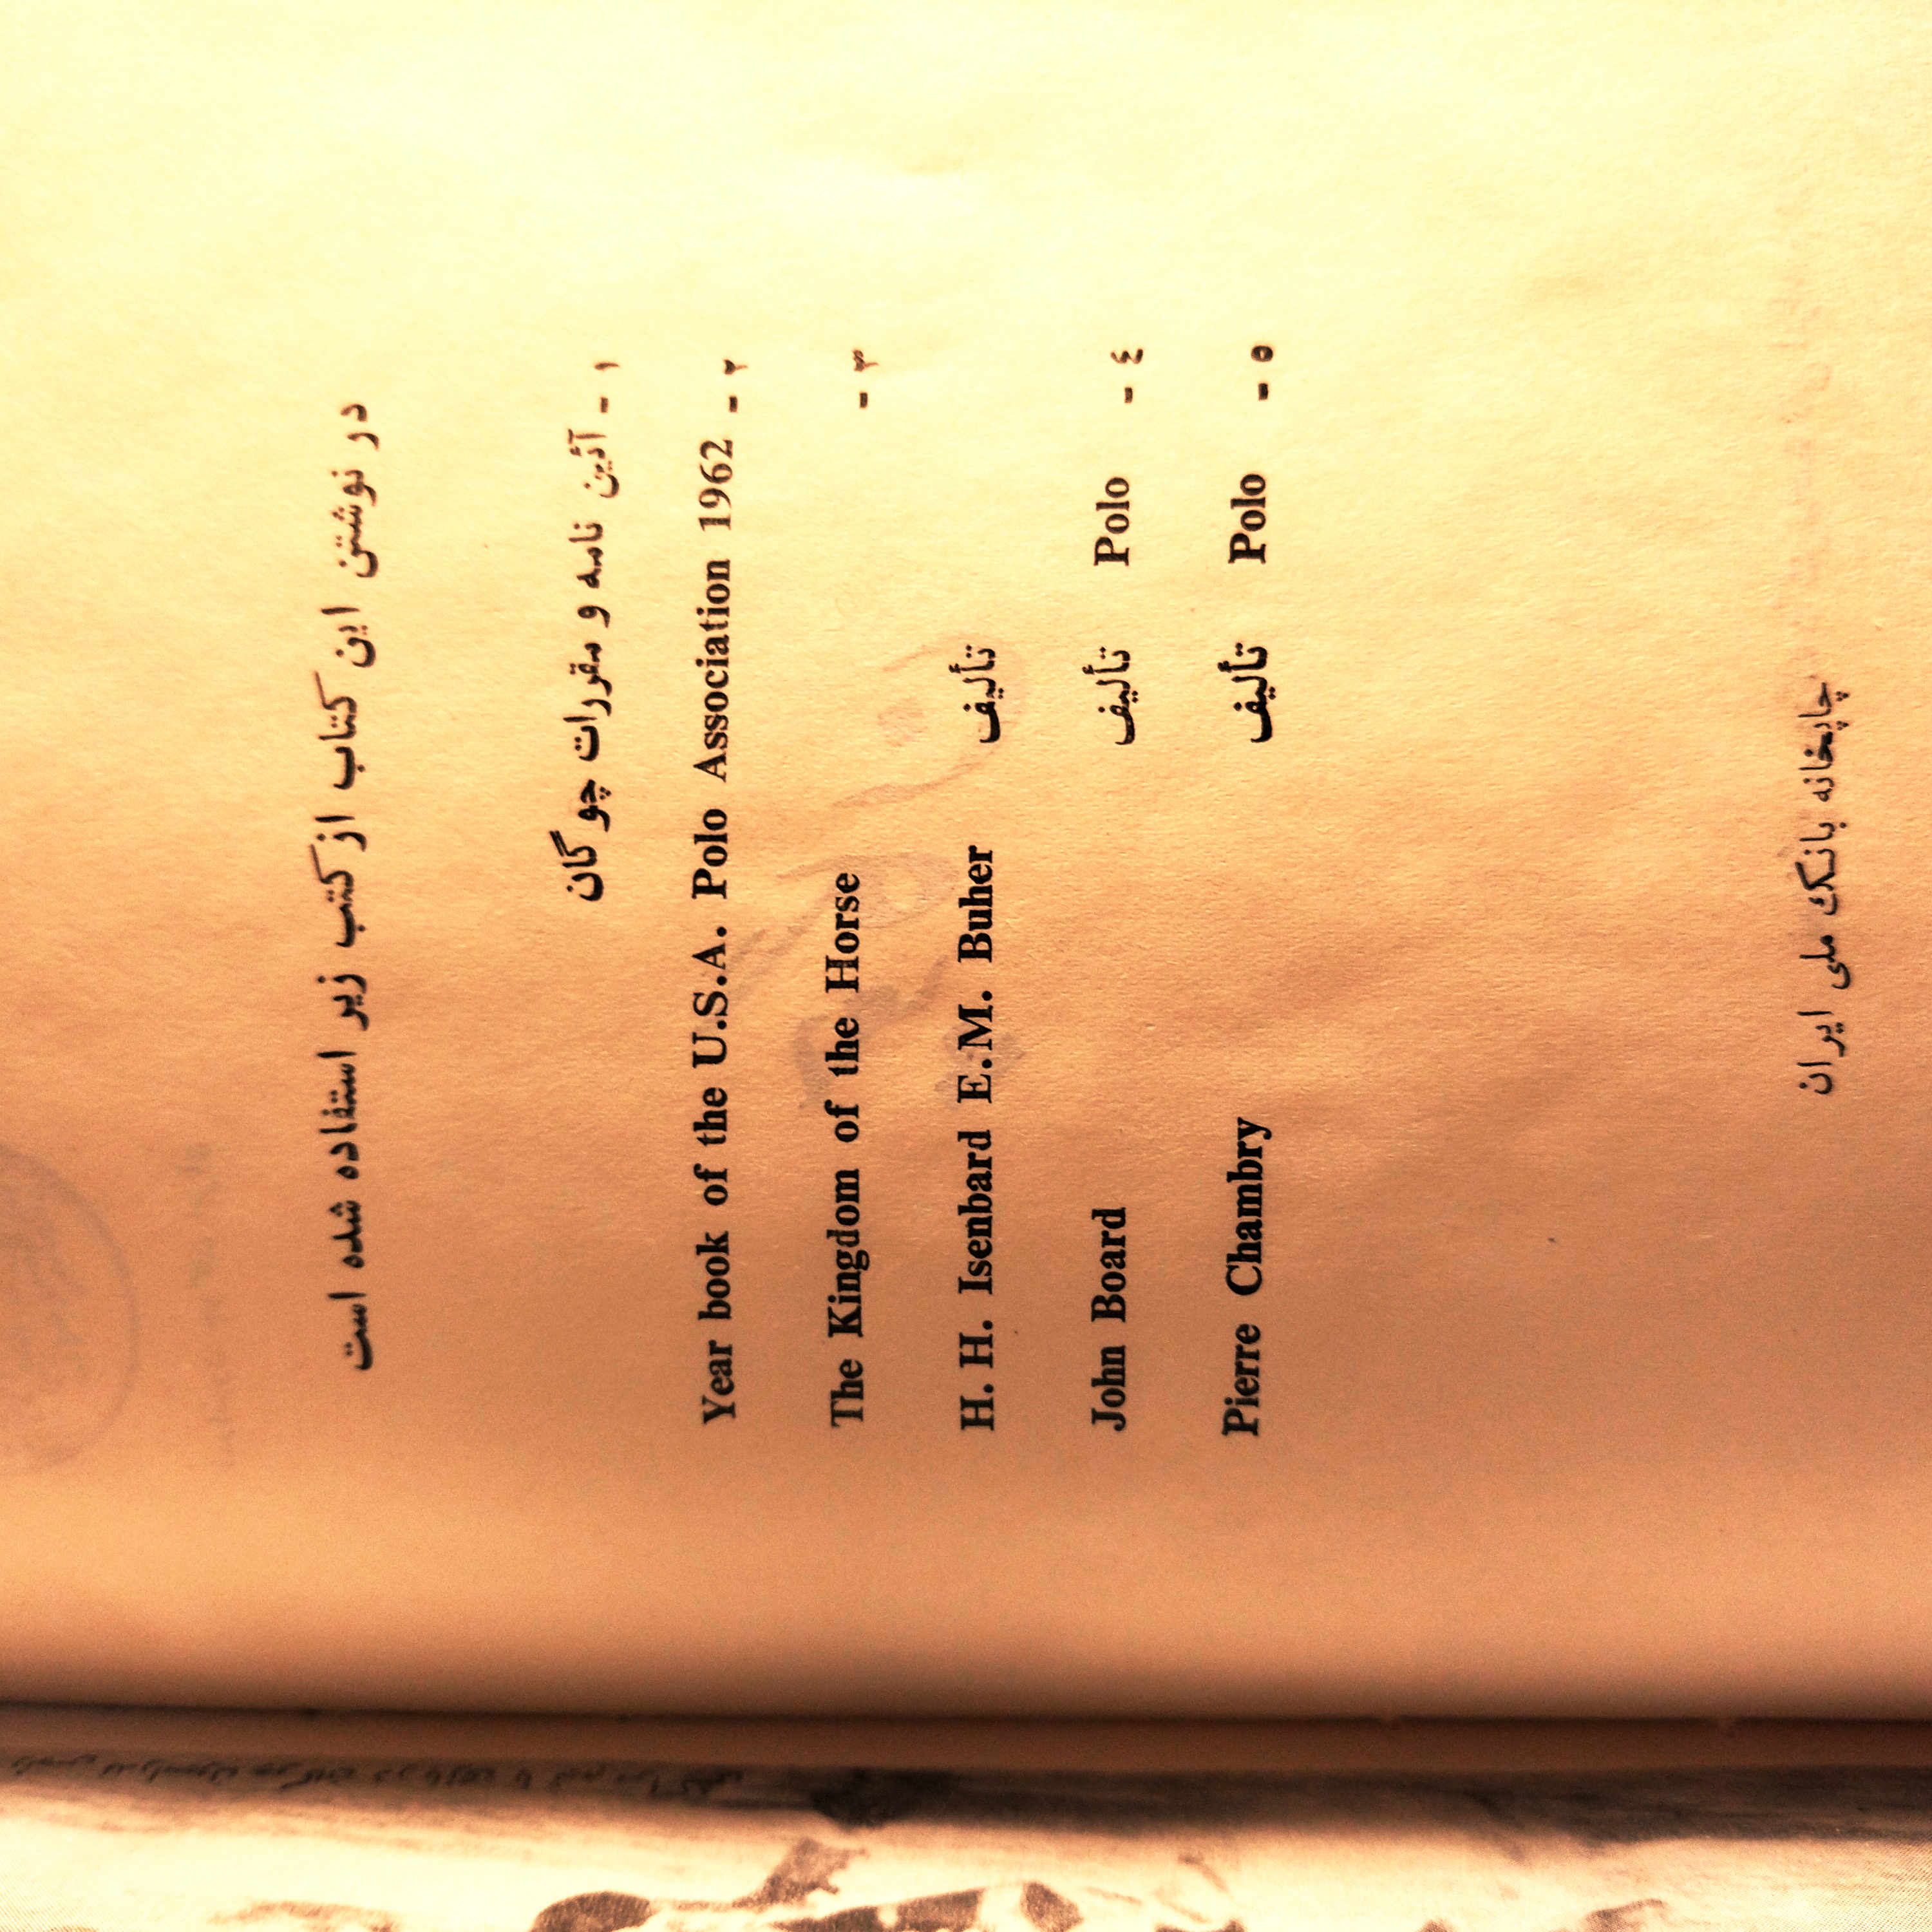 در نوشتن این کتاب از کتب زیر استفاده شده است
۱ - آئین نامه و مقررات چوگان
۲ - Year book of the U.S.A. Polo Association 1962
۳ - The Kingdom of the Horse
تألیف H. H. Isenbard E.M. Buher
٤ - Polo تألیف John Board
۵ - Polo تألیف Pierre Chambry
چاپخانه بانک ملی ایران